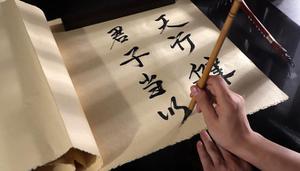 天行健
君子当以